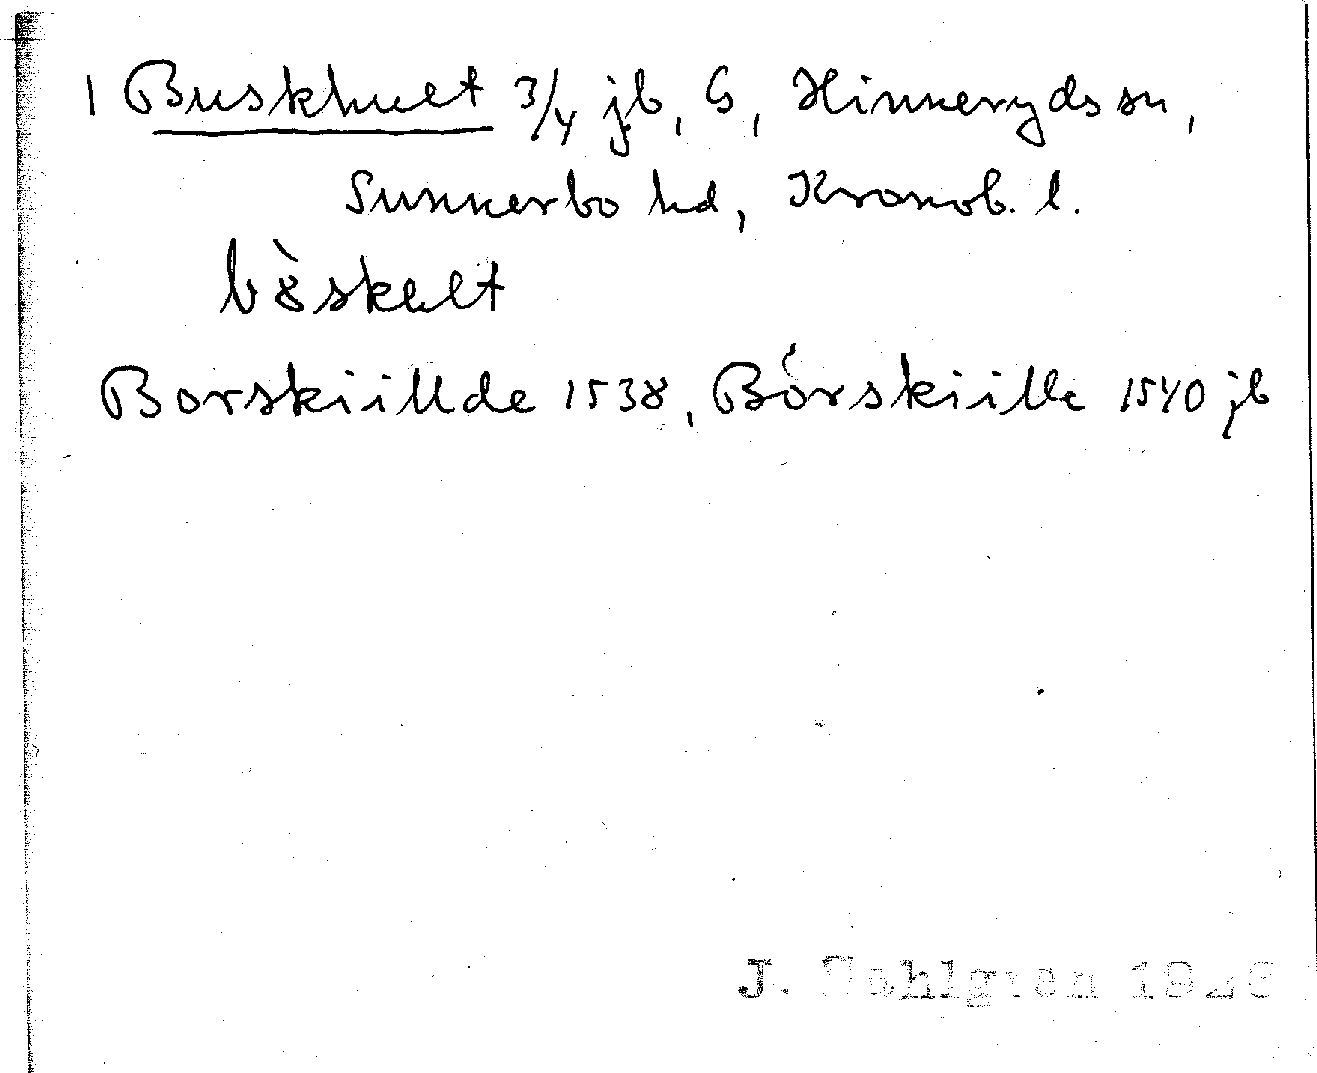 1 Buskhult 3/4 jb, G, Hinneryds sn,
Sunnerbo hd, Kronob. l.
bòskelt
Borskiillde 1538, Börskiille 1540 jb
J.